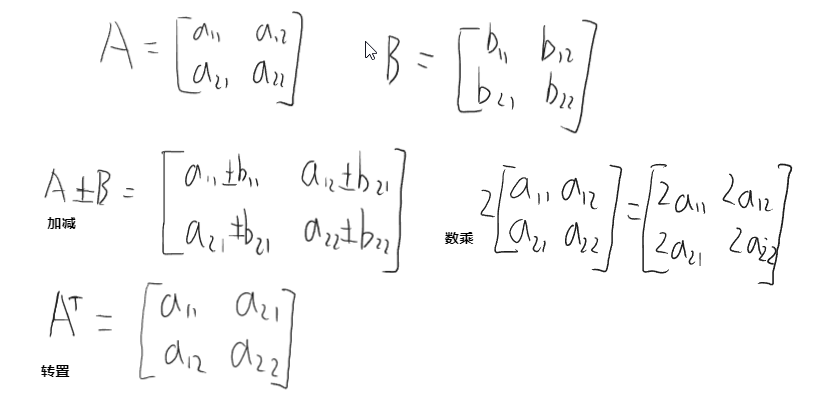 A = [a₁₁ a₁₂ B = [b₁₁ b₁₂
a₂₁ a₂₂] b₂₁ b₂₂]
A ± B = [a₁₁±b₁₁ a₁₂±b₂₁
a₂₁±b₂₁ a₂₂±b₂₂]
加减
2[a₁₁ a₁₂ = [2a₁₁ 2a₁₂
a₂₁ a₂₂] 2a₂₁ 2a₂₂]
数乘
Aᵀ = [a₁₁ a₂₁
a₁₂ a₂₂]
转置